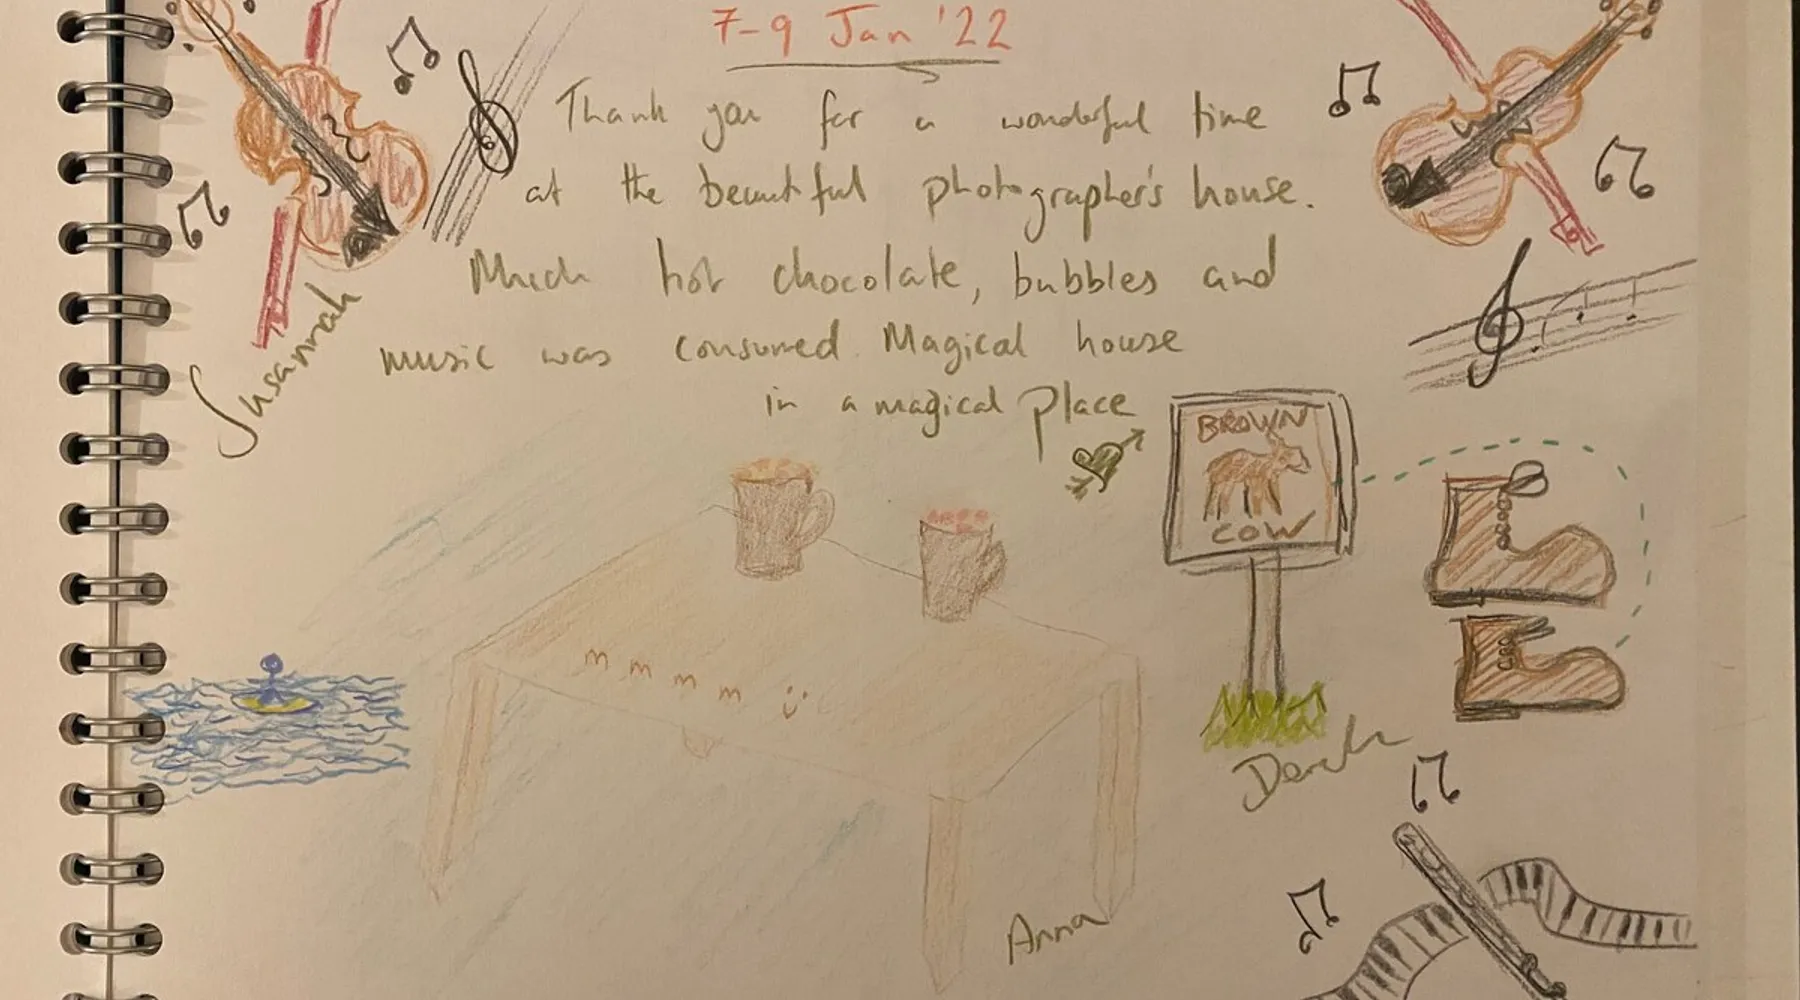 7-9 Jan '22
Thank you for a wonderful time
at the beautiful photographer's house.
Much hot chocolate, bubbles and
music was consumed. Magical house
in a magical place
Susannah
BROWN
COW
m m m m
Anna